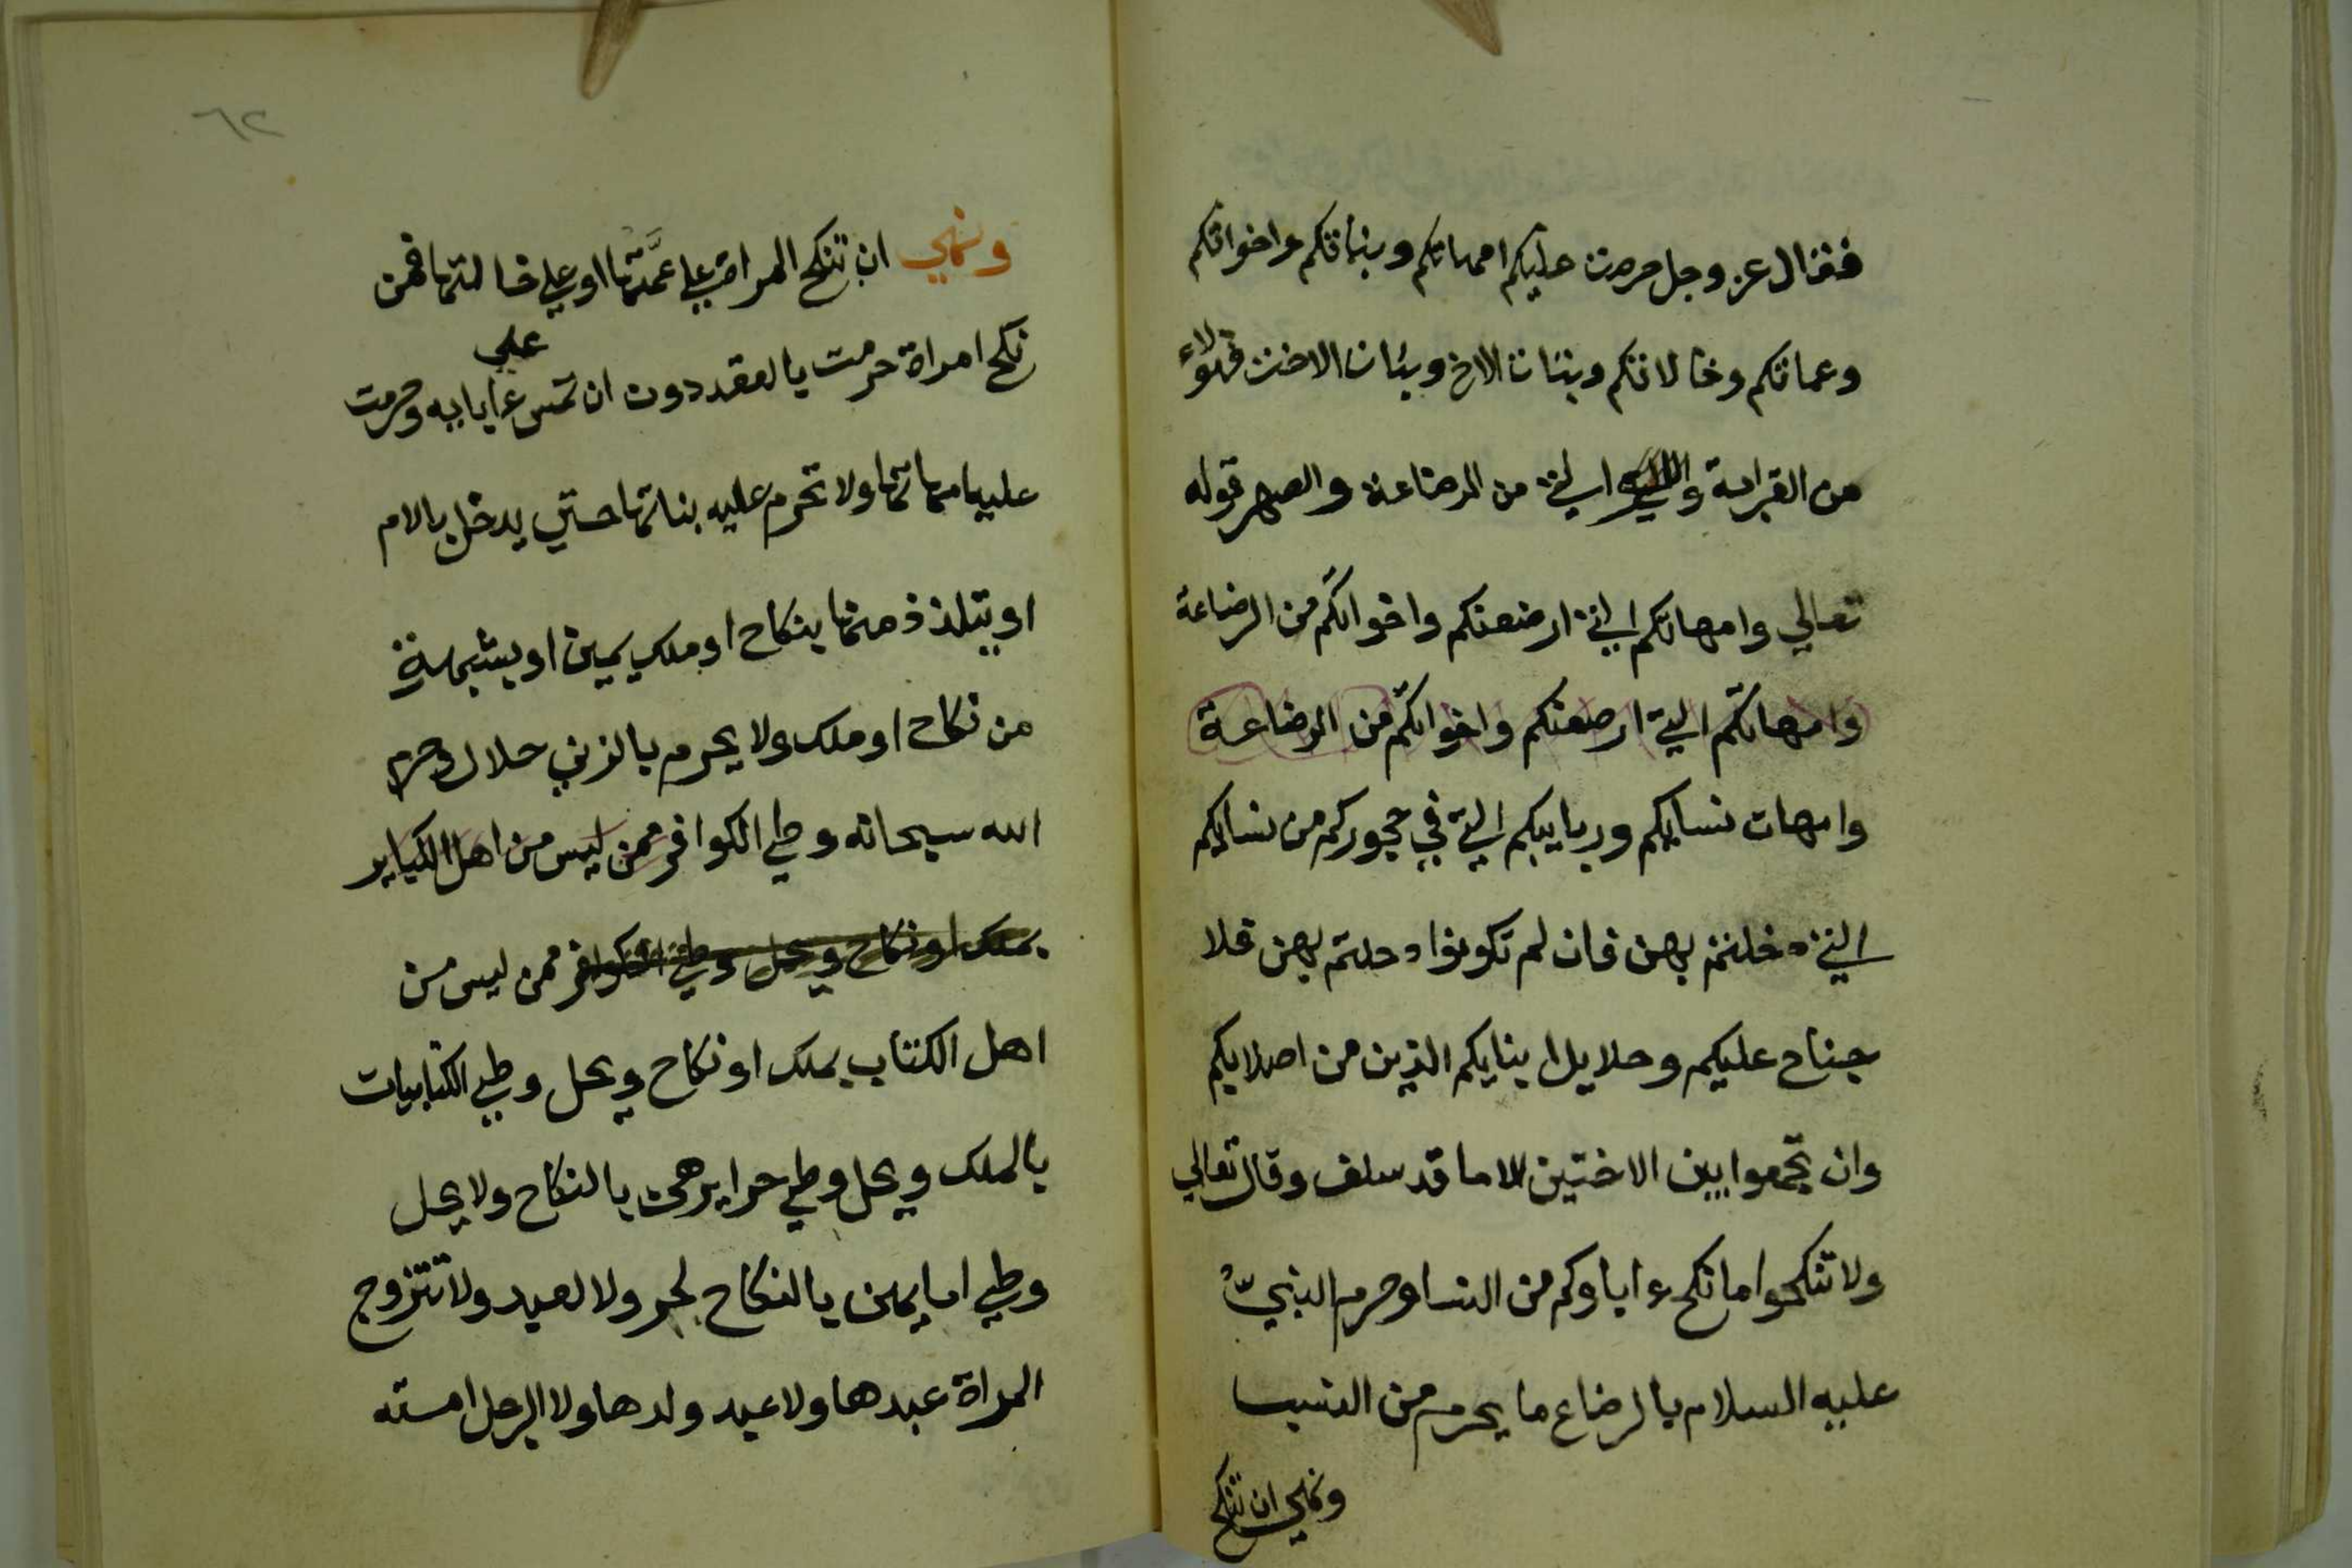 فقال عز وجل حرمت عليكم امهاتكم وبناتكم واخواتكم
وعماتكم وخالاتكم وبنات الاخ وبنات الاخت فهؤلاء
من القرابة و التي من الرضاعة والصهر قوله
تعالي وامهاتكم التي ارضعنكم واخواتكم من الرضاعة
وامهاتكم التي ارضعنكم واخواتكم من الرضاعة
وامهات نسايكم وربايبكم التي في حجوركم من نسايكم
التي دخلتم بهن فان لم تكونوا دخلتم بهن فلا
جناح عليكم وحلايل ابنايكم الذين من اصلابكم
وان تجمعوا بين الاختين الا ما قد سلف وقال تعالي
ولا تنكحوا ما نكح ءاباوكم من النسا وحرم النبي
عليه السلام بالرضاع ما يحرم من النسب
ونهي ان تنكح
٦٢
ونهي ان تنكح المراة علي عمتها او علي خالتها فمن
نكح امراة حرمت بالعقد دون ان تمس علي ءابايه وحرمت
عليه امهاتها ولا تحرم عليه بناتها حتي يدخل بالام
او يتلذذ منها بنكاح او ملك يمين او بشبهة
من نكاح او ملك ولا يحرم بالزني حلال وحرم
الله سبحانه وطي الكوافر ممن ليس من اهل الكباير
بملك او نكاح ويحل وطي الكوافر ممن ليس من
اهل الكتاب بملك او نكاح ويحل وطي الكتابيات
بالملك ويحل وطي حرايرهن بالنكاح ولا يحل
وطي امايهن بالنكاح لحر ولا لعبد ولا تتزوج
المراة عبدها ولا عبد ولدها ولا الرجل امته